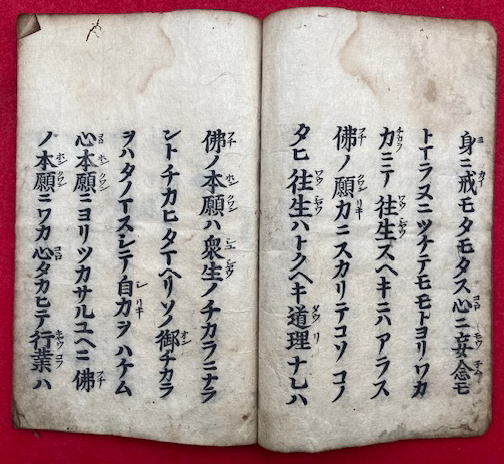 身ニ戒モタモタス心ニ妄念モ
トマラヌニツキテモモトヨリワカ
力ニテ往生スヘキニハアラス
佛ノ願力ニスカリテコソコノ
タヒ往生ハトクヘキ道理ナレハ
佛ノ本願ハ衆生ノチカラニナラ
シトチカヒタマヘリソノ御チカラ
ヲハタノマスシテ自力ヲハケム
心本願ニヨリツカサルユヘニ佛
ノ本願ニワカ心タカヒテ行業ハ